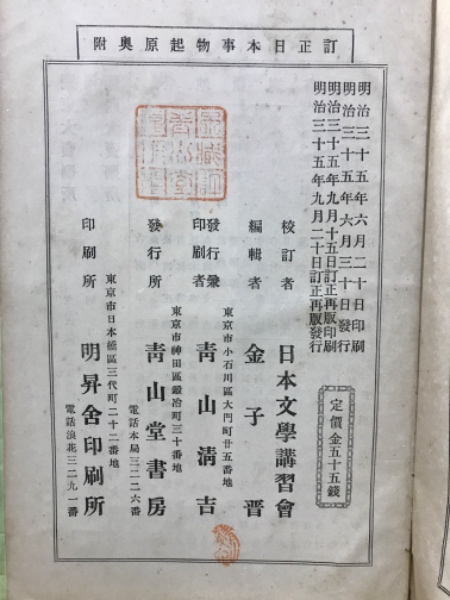 訂正日本事物起原奧附
明治三十五年六月二十日印刷
明治三十五年六月三十日發行
明治三十五年九月十五日訂正再版印刷
明治三十五年九月二十日訂正再版發行
定價金五十五錢
校訂者 日本文學講習會
編輯者 金子晋
東京市小石川區大門町廿五番地
發行兼印刷者 靑山淸吉
東京市神田區鍛冶町三十番地
發行所 靑山堂書房
電話本局三二二六番
東京市日本橋區三代町二十二番地
印刷所 明昇舍印刷所
電話浪花三二九一番